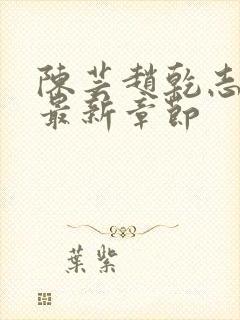 陳芸趙乾志
最新章節
葉紫